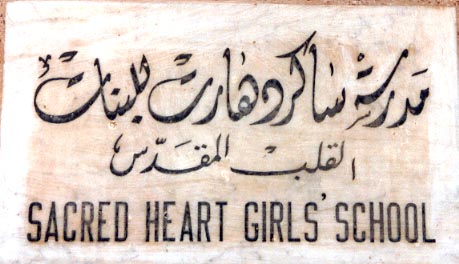 مدرسة ساكرد هارت للبنات
القلب المقدّس
SACRED HEART GIRLS' SCHOOL